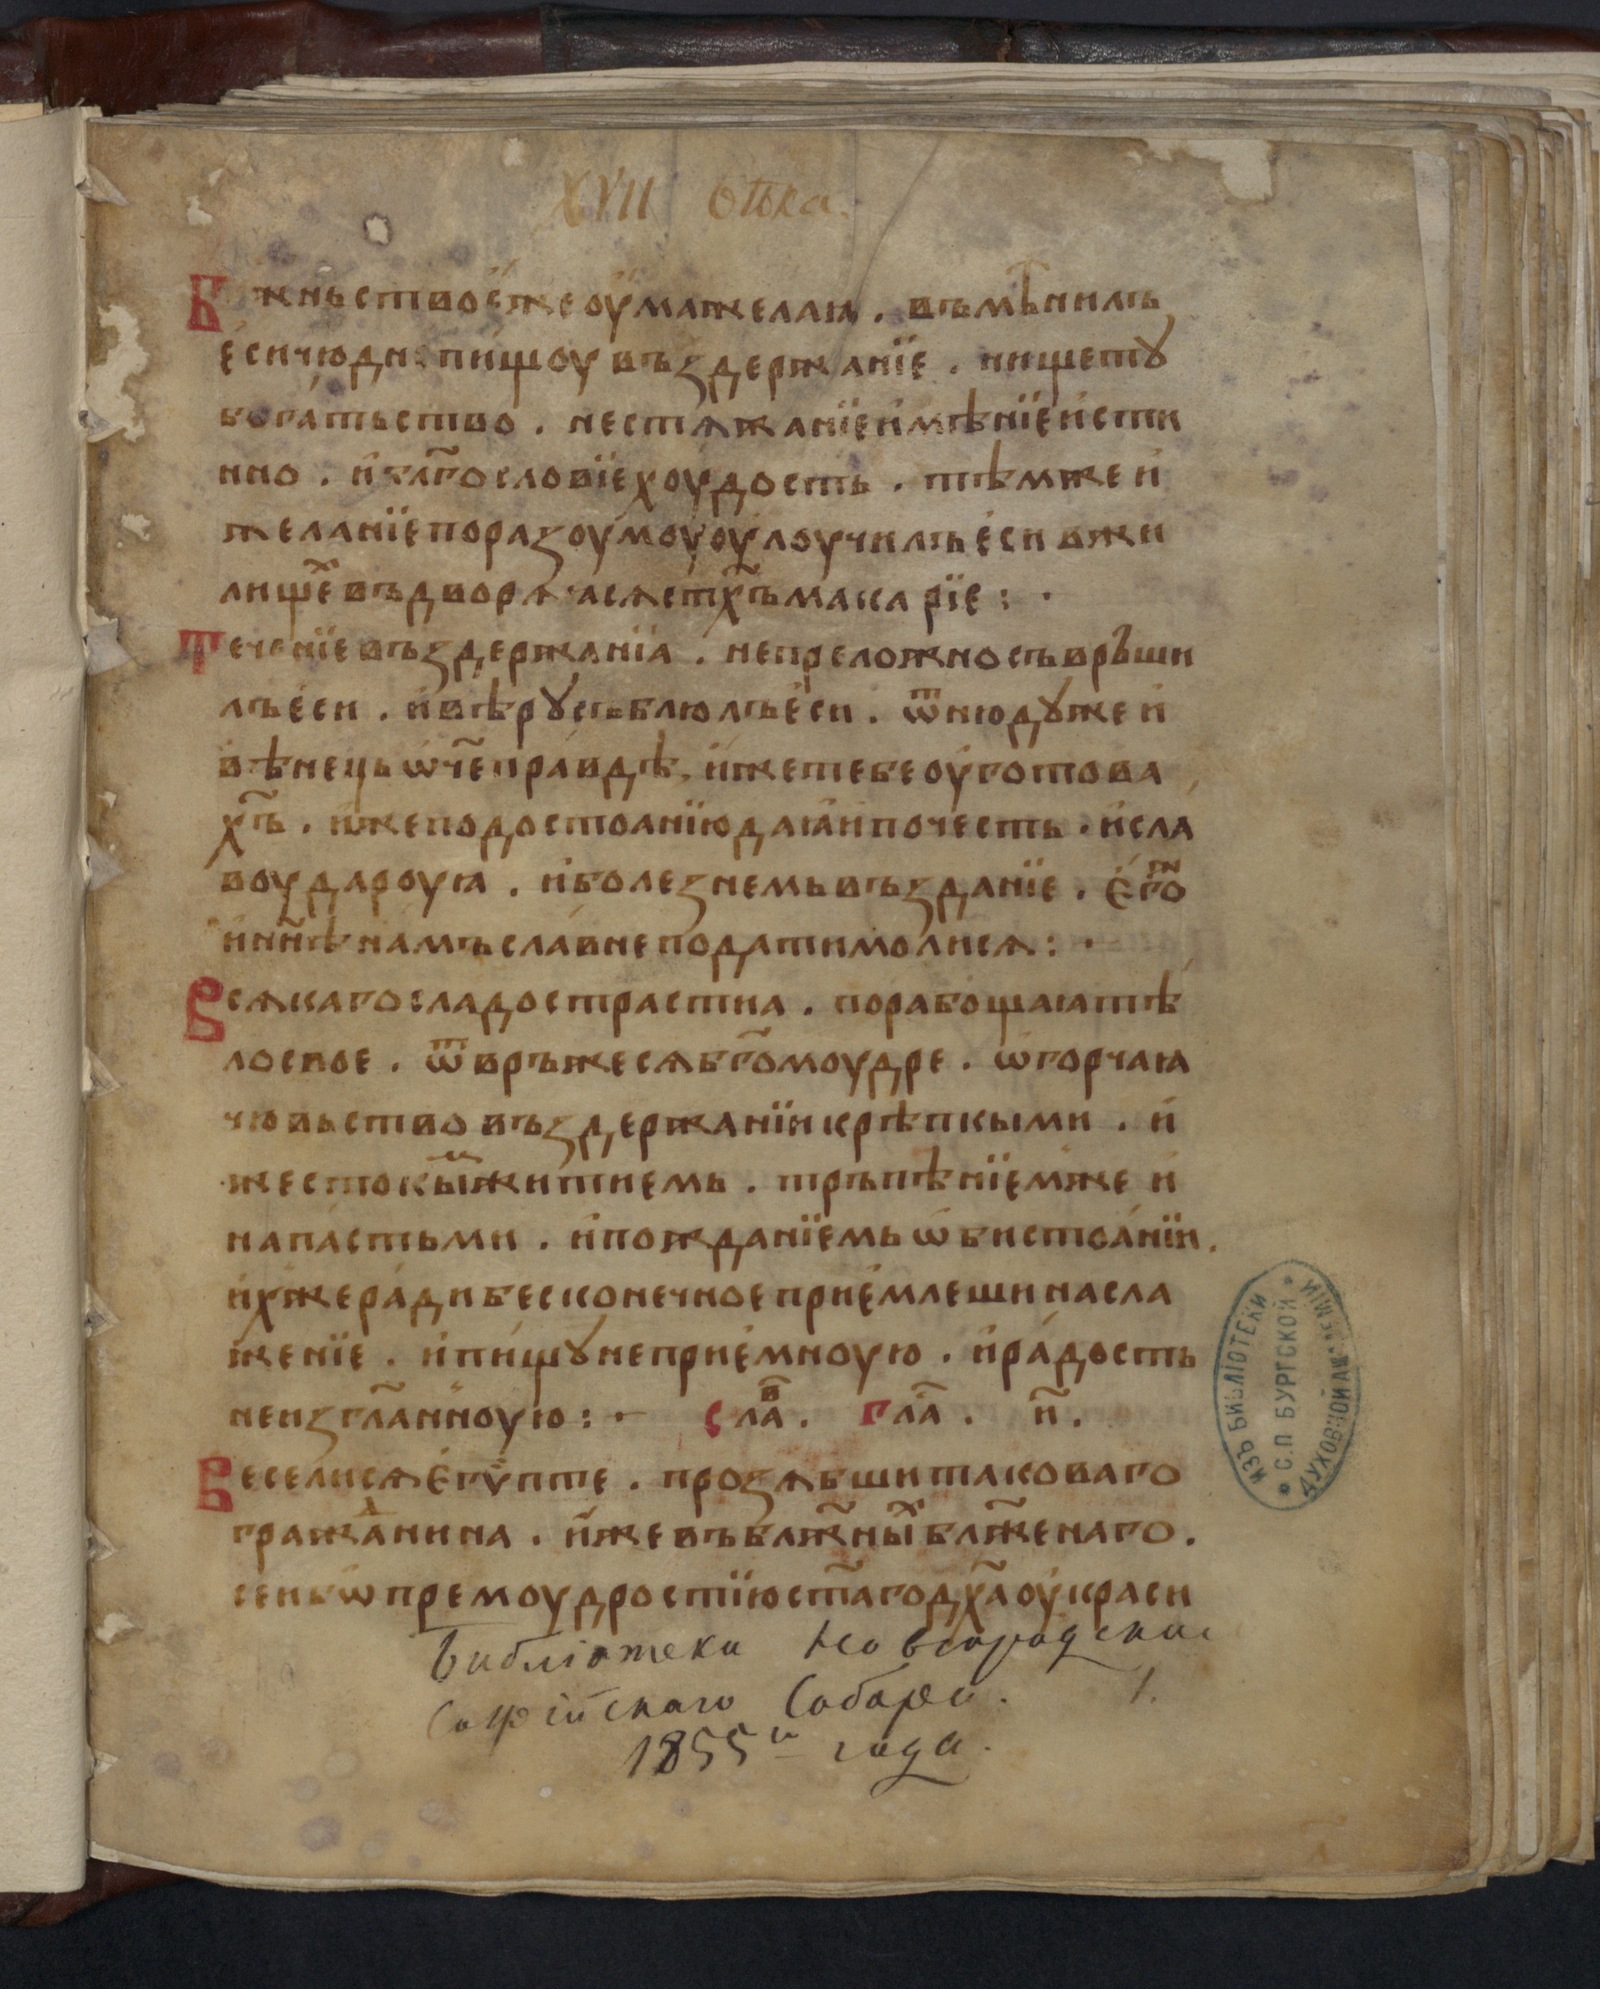 XVII вѣка.
Бжⷭньство є҆́же оу҆ма желаѧ . въмѣнилъ
є҆си чюдне пи́щоу въздержанїе . нищетꙋ
бога́тьство . нестѧжанїе и҆мѣнїе и҆сти
нно . и҆ бл҃гословїе хоудость . тѣмже и҆
желанїе по разоу́моу оу҆лоучилъ є҆си в жи
лищеⷯ въдворѧ́асѧ ст҃хъ макарїе : ·
Теченїе въздержанїа . непреложно съврьши
лъ є҆си . и҆ вѣрꙋ съблюлъ є҆си . ѿнюдꙋже и҆
вѣнець ѡ҆ч҃е пра́вдѣ , и҆же тебе оу҆готова
хс҃ъ . и҆же по достоанїю даꙗ́и почесть · и҆ сла́
воу дароуꙗ . и҆ болезнемь възданїе . є҆гоⷤ
и҆ нн҃ѣ намъ сла́вне подати молисѧ : ·
Всѧкаго сладострастиа . порабощаꙗ тѣ́
ло свое . ѿвръжесѧ бг҃омоудре . ѡ҆горчаꙗ
чювьство въздержанїи крѣпкыми . и҆
жестокыⷨ житиемь . тръпѣнїемже и҆
напа́стьми . и҆ пожданїемь ѡ҆бистоа́нїи .
и҆хже ра́ди бесконечное прие́млеши насла
женїе . и҆ пи́щꙋ неприе́мноую . и҆ ра́дость
неизгл҃анноую : · слаⷡ҇ . гл҃а . и҃ .
Веселисѧ є҆гѵ́пте . прозѧбши таковаго
гражⷣанина . и҆́же въ бл҃жⷩ҇ныⷯ бл҃женаго .
се и҆бѡ премоудростїю ст҃аго дх҃а оу҆краси
Библіотеки Новгородскаго
Софійскаго Собора. 1.
1855го года.
ИЗЪ БИБЛІОТЕКИ
С.П БУРГСКОЙ
ДУХОВНОЙ АКАДЕМІИ